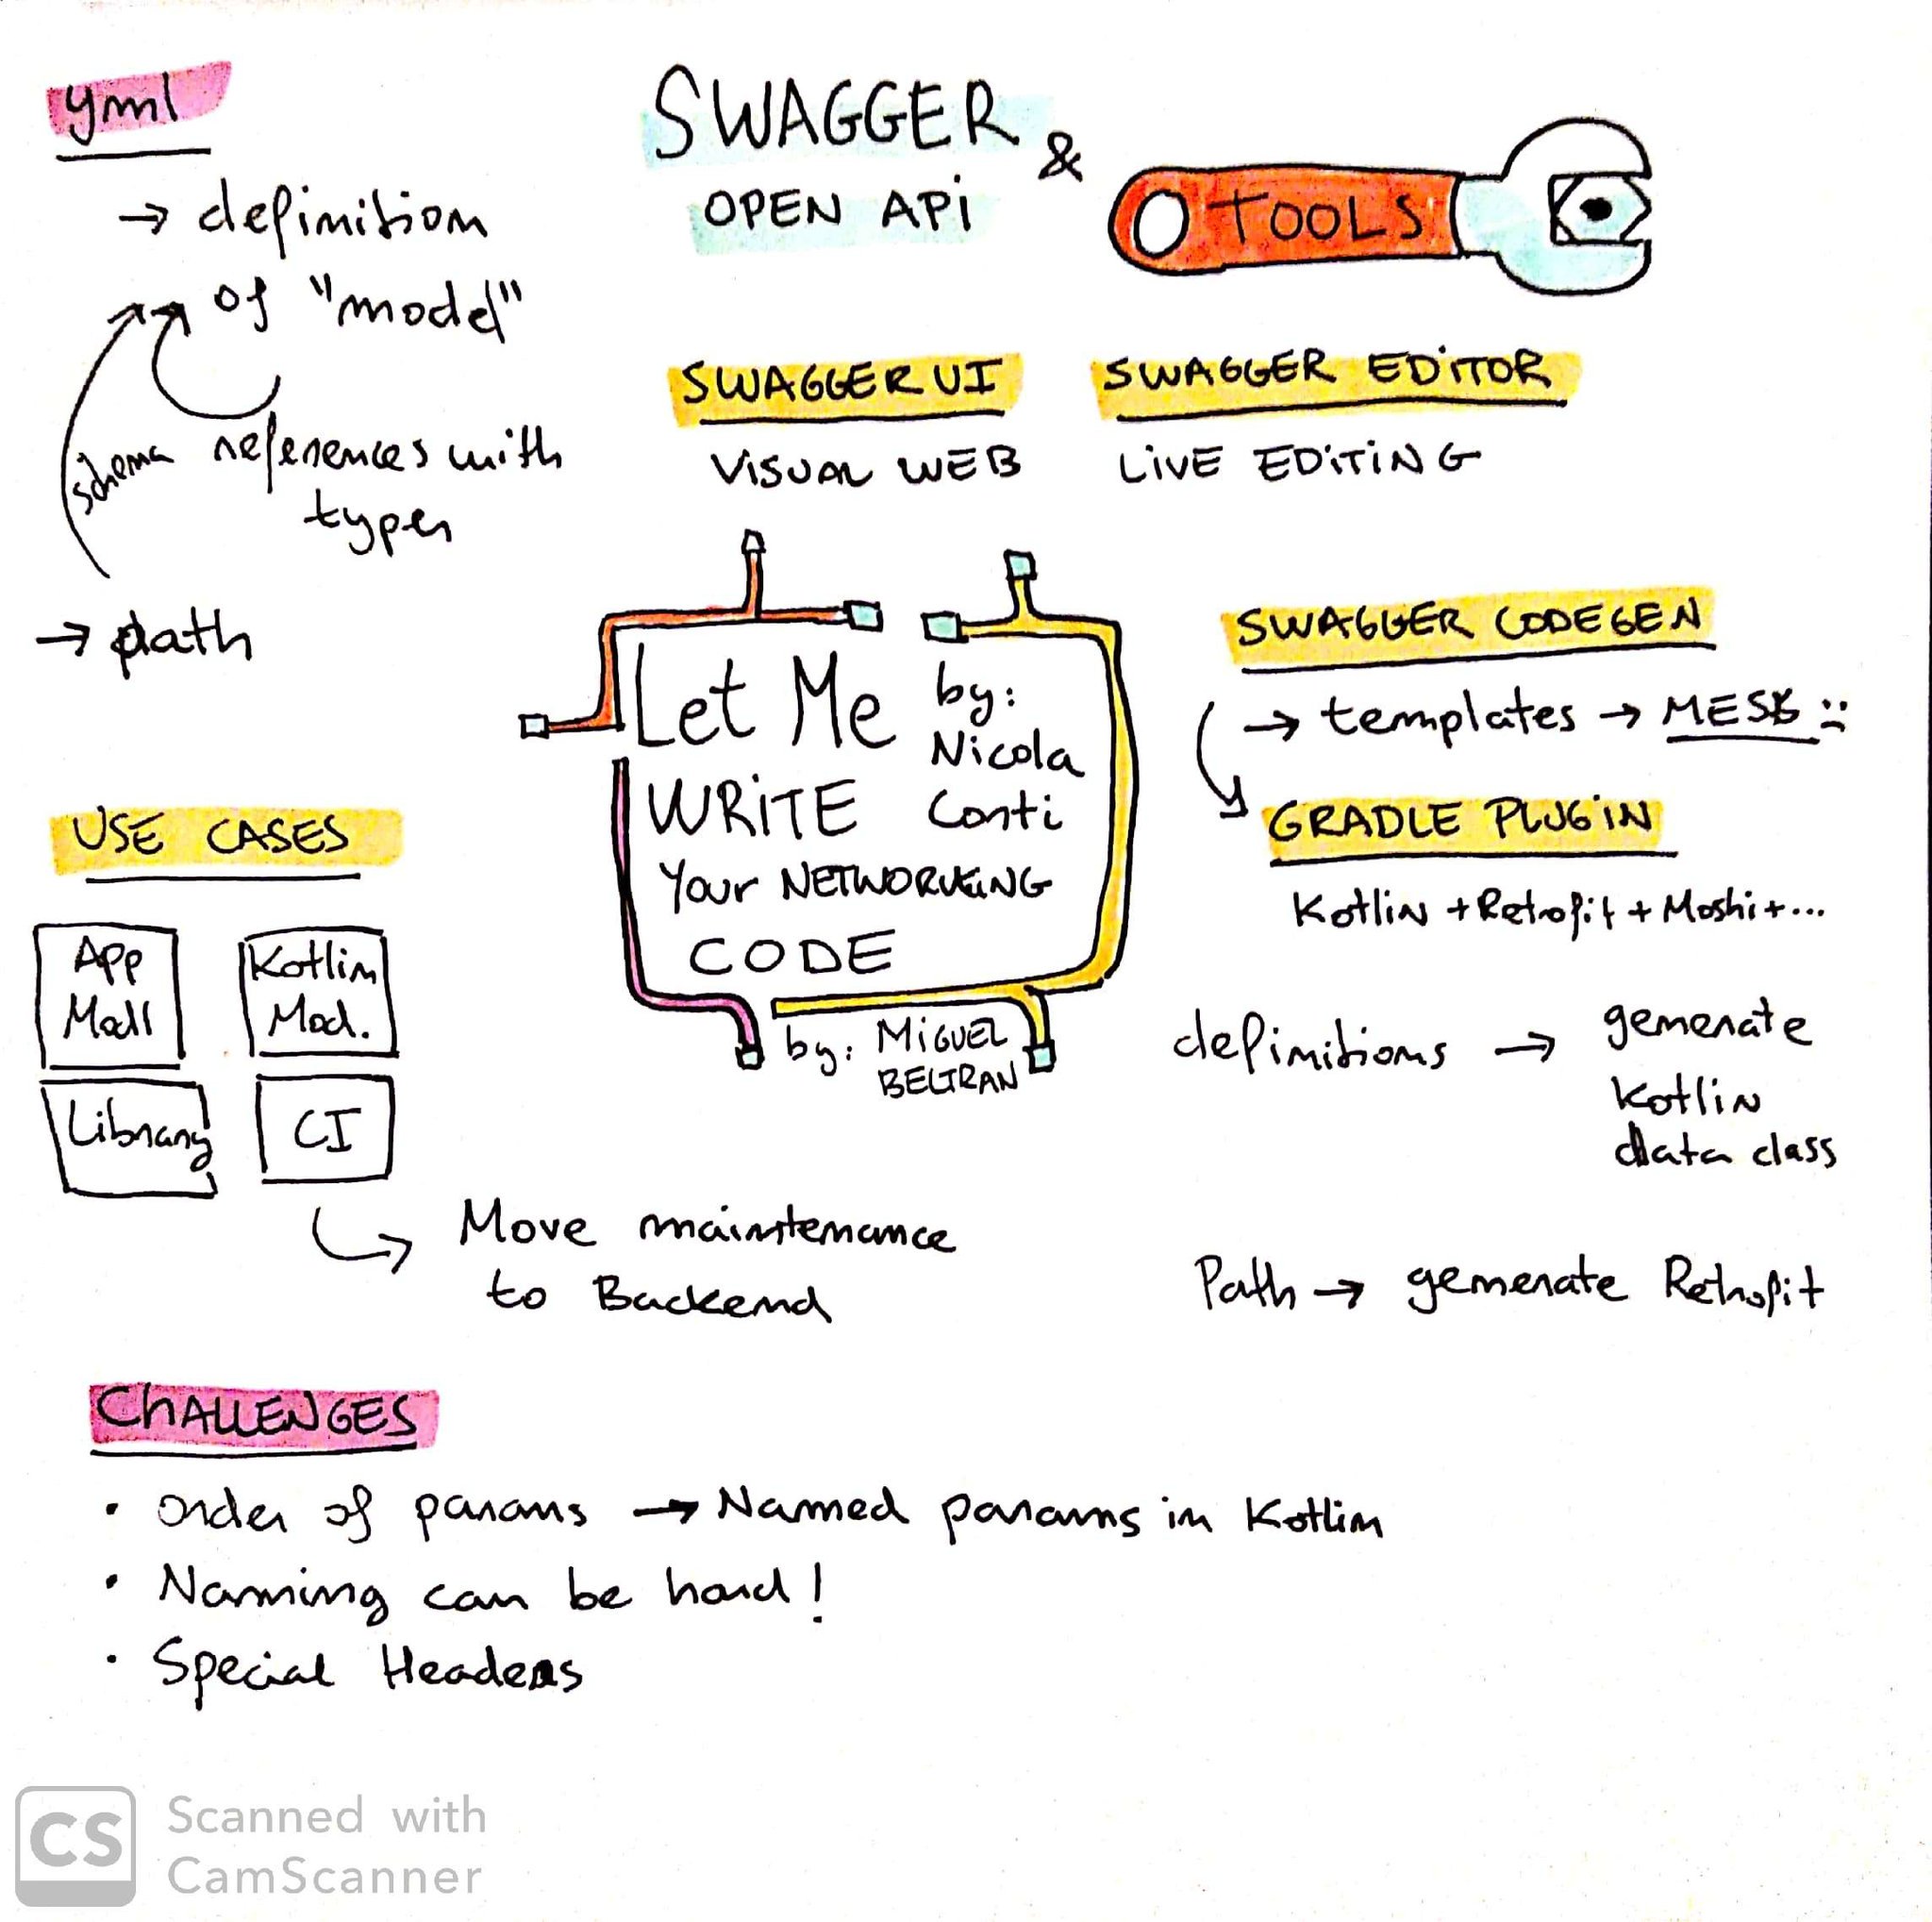 yml
→ definition
of "model"
schema
references with
types
→ path
SWAGGER
&
OPEN APi
TOOLS
SWAGGER UI
VISUAL WEB
SWAGGER EDITOR
LIVE EDITING
Let Me
WRITE
Your NETWORKING
CODE
by:
Nicola
Conti
by: MIGUEL
BELTRAN
SWAGGER CODEGEN
→ templates → MESS :(
GRADLE PLUGIN
Kotlin + Retrofit + Moshi + ...
definitions → generate
Kotlin
data class
Path → generate Retrofit
USE CASES
App
Kotlin
Mod.
Library
CI
Move maintenance
to Backend
CHALLENGES
• Order of params → Named params in Kotlin
• Naming can be hard!
• Special Headers
CS
Scanned with
CamScanner